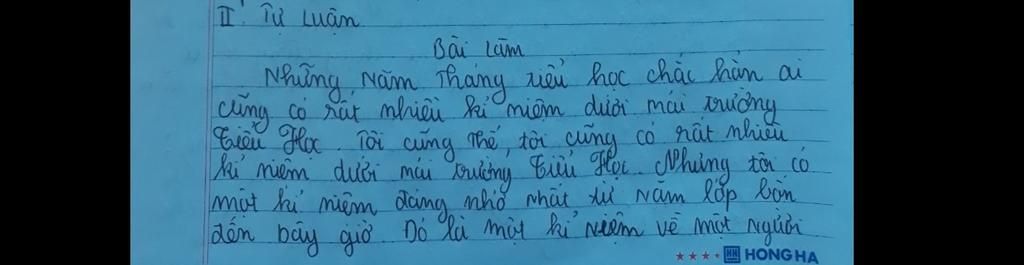 II. Tự Luận
Bài Làm
Những Năm Tháng tiểu học chắc hẳn ai
cũng có rất nhiều kỉ niệm dưới mái trường
Tiểu Học. Tôi cũng thế, tôi cũng có rất nhiều
kỉ niệm dưới mái trường Tiểu Học. Nhưng tôi có
một kỉ niệm đáng nhớ nhất từ năm lớp bốn
đến bây giờ. Đó là một kỉ niệm về một người
HONG HA